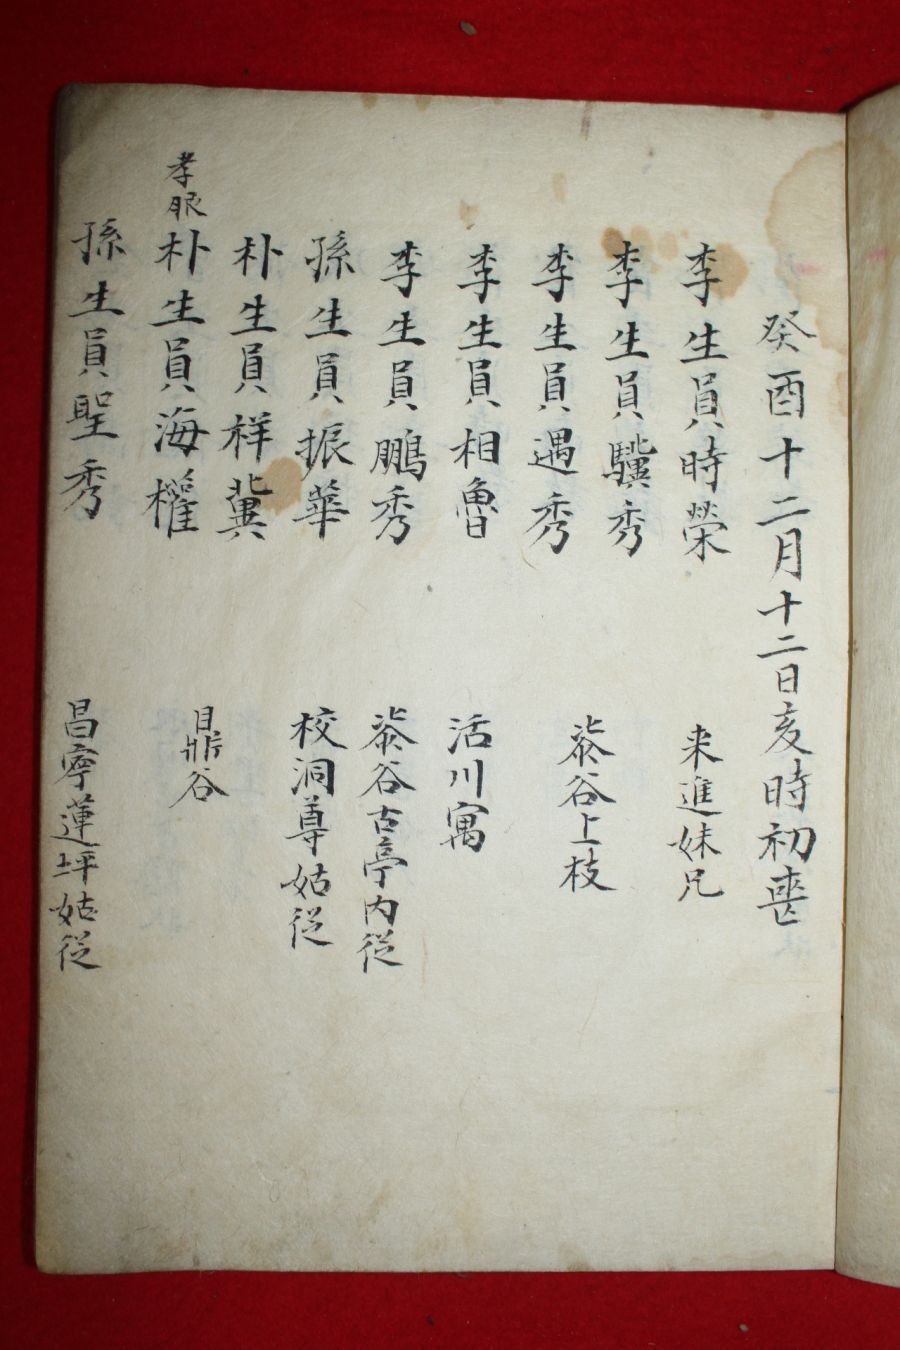 癸酉十二月十二日亥時初喪
李生員時榮
来進妹兄
李生員驥秀
李生員遇秀
柒谷上枝
李生員相魯
活川寓
李生員鵬秀
柒谷古亭內従
孫生員振華
校洞尊姑従
朴生員祥冀
孝服
朴生員海權
鼎谷
孫生員聖秀
昌寧蓮坪姑従